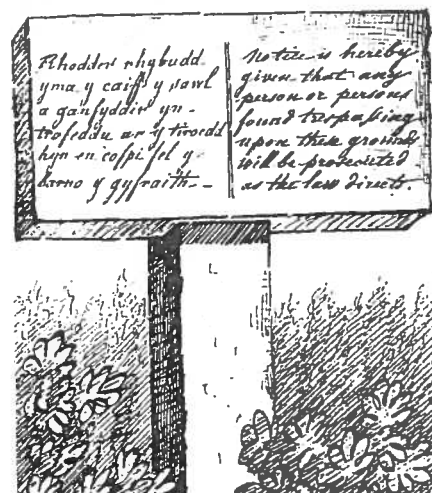 Rhodder rhybudd
yma y caiff y sawl
a ganfyddir yn-
trofeddu ar y tiroedd
hyn eu cospi fel y
barno y gyfraith.-
Notice is hereby
given that any
person or persons
found trespassing
upon these grounds
will be prosecuted
as the law directs.